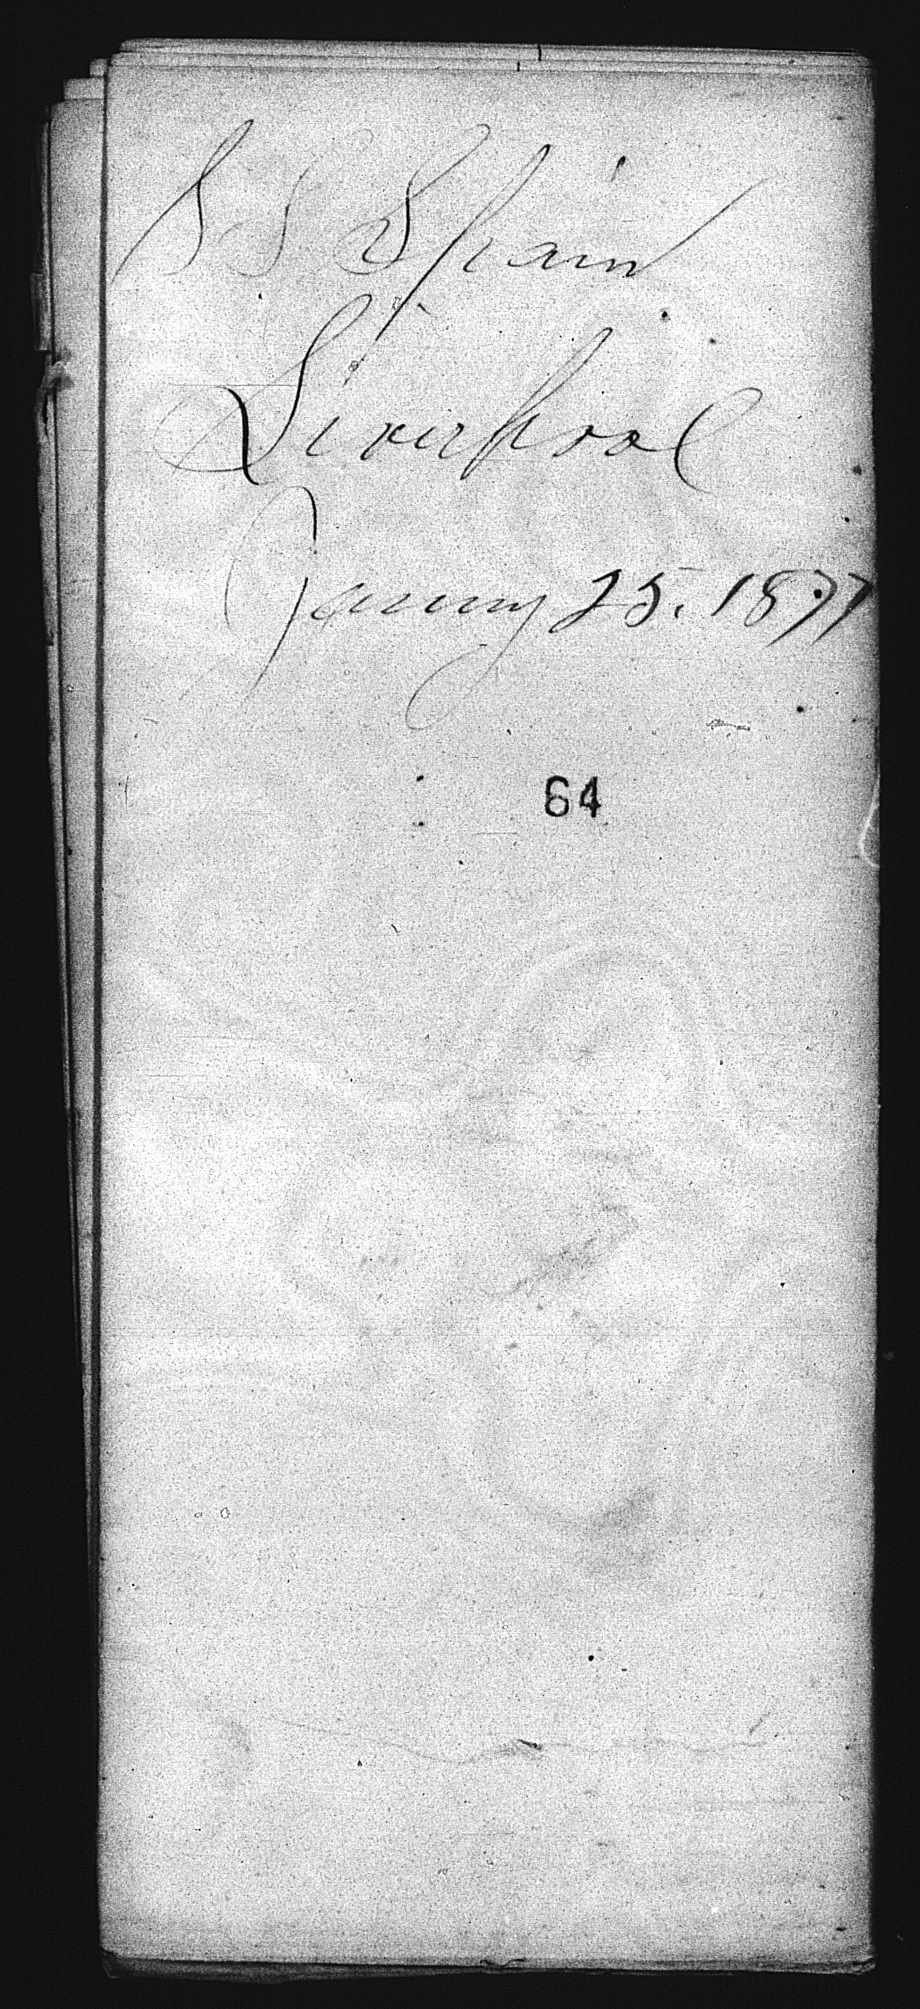 S S Spain
Liverpool
January 25. 1877
64